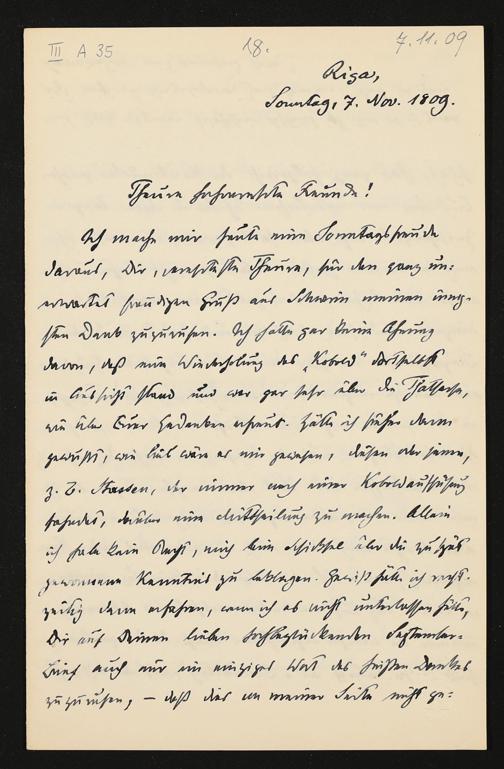 III A 35
18.
7.11.09
Riga,
Sonntag, 7. Nov. 1909.
Theure hochverehrte Freunde!
Ich mache mir heute eine Sonntagsfreude
daraus, Dir, verehrteste Theure, für den ganz un-
erwarteten freudigen Gruß aus Schwerin meinen innig-
sten Dank zuzurufen. Ich hatte gar keine Ahnung
davon, daß eine Wiederholung des „Kobold" daselbst
in Aussicht stand und war gar sehr über die Thatsache,
wie über Euer Gedenken erfreut. Hätte ich früher davon
gewußt, wie lieb wäre es mir gewesen, diesen oder jenen,
z. B. Stassen, der immer noch einer Koboldaufführung
fahndet, darüber eine Mittheilung zu machen. Allein
ich habe kein Recht, mich beim Schicksal über die zu spät
gewonnene Kenntnis zu beklagen. Gewiß hätte ich recht-
zeitig davon erfahren, wenn ich es nicht unterlassen hätte,
Dir auf Deinen lieben hochbeglückenden September-
brief auch nur ein einziges Wort des heißen Dankes
zuzurufen, – daß dies von meiner Seite nicht ge-